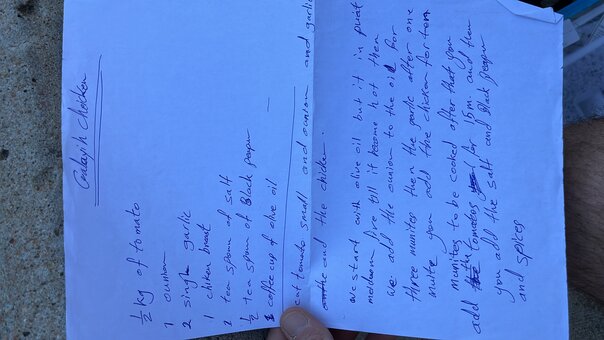 chicken
1/2 kg of tomato
1 ounion
2 single garlic
1 chiken breast
1 tea spoun of salt
1/2 tea spoun of Black pepur
1 coffee cup of olive oil
cut tomato small and ounion and garlic
and the chicken.
we start with olive oil but it in
meduom fire till it become hot then
we add the ounion to the oil for
three munites then the garlic after one
munite you add the chicken for ten
munites to be cooked after that you
add the tomatoes for 15m and then
you add the salt and Black pepur
and spices